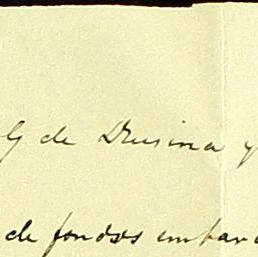 G de Drusina y
de fondos embarc